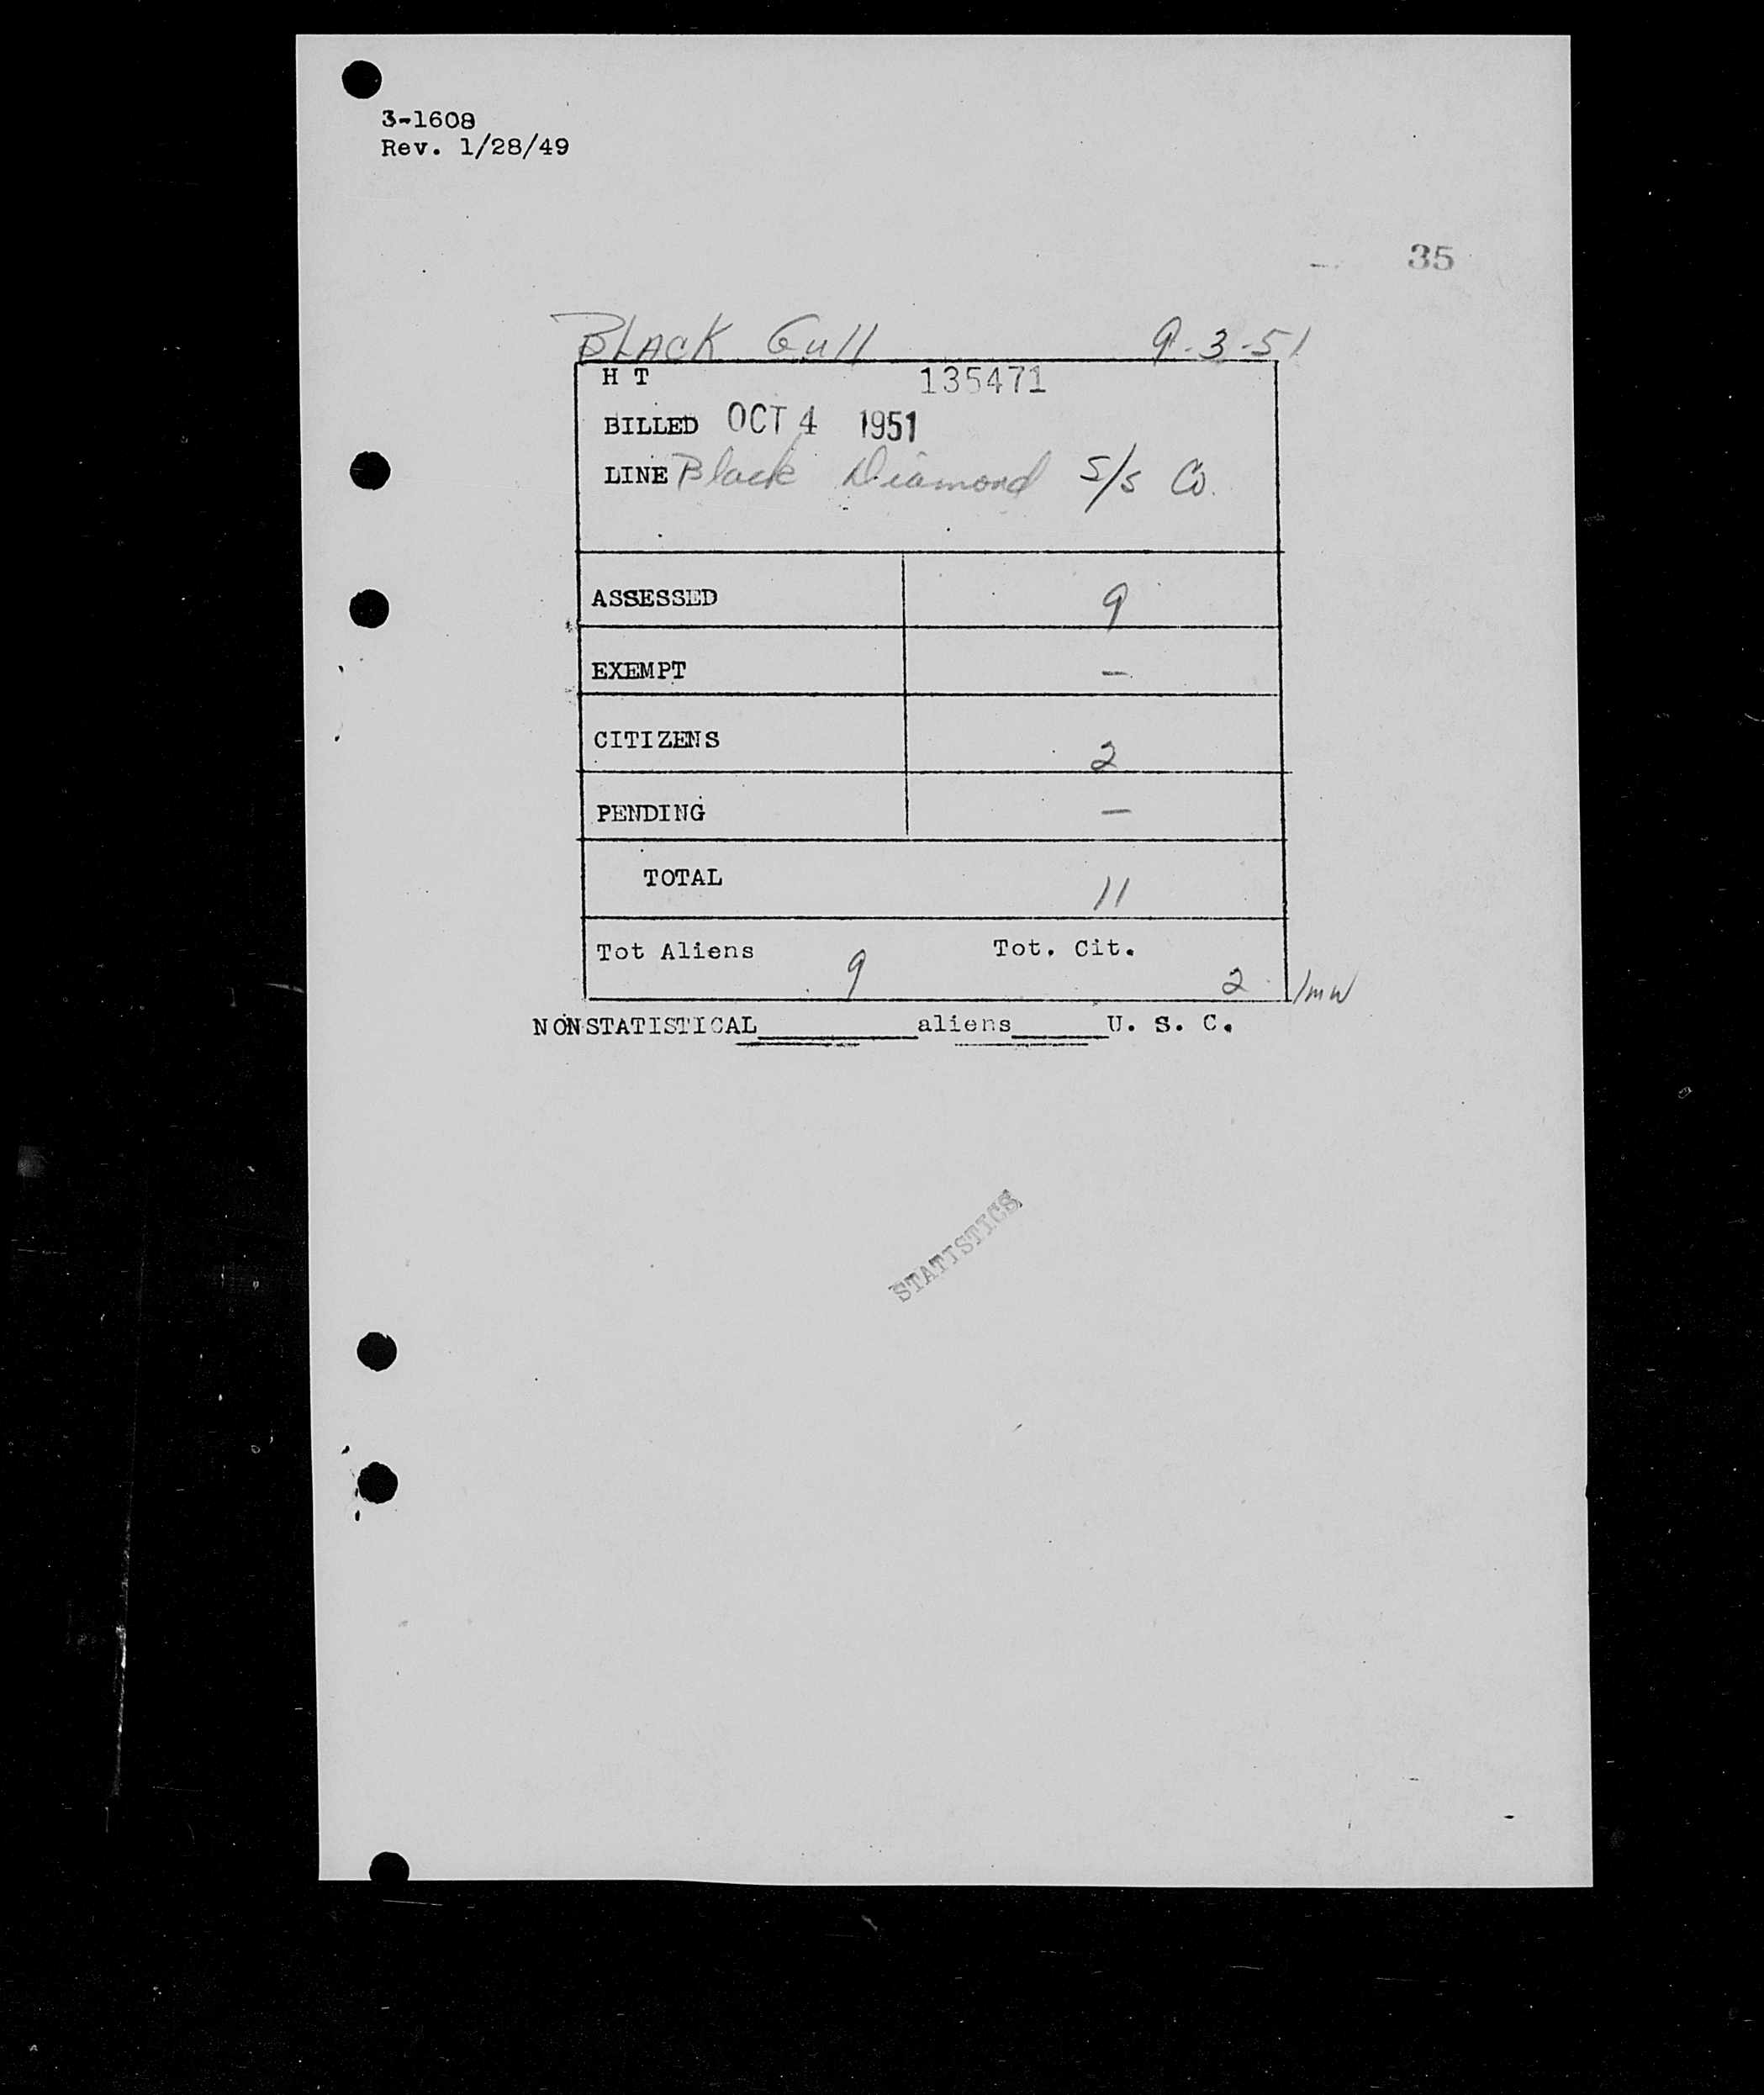 3-1608
Rev. 1/28/49
35
BLACK Gull 9-3-51
H T 135471
BILLED OCT 4 1951
LINE Black Diamond S/S Co.
ASSESSED 9
EXEMPT —
CITIZENS 2
PENDING —
TOTAL 11
Tot Aliens 9 Tot. Cit. 2
NONSTATISTICAL__________aliens______U. S. C.
STATISTICS